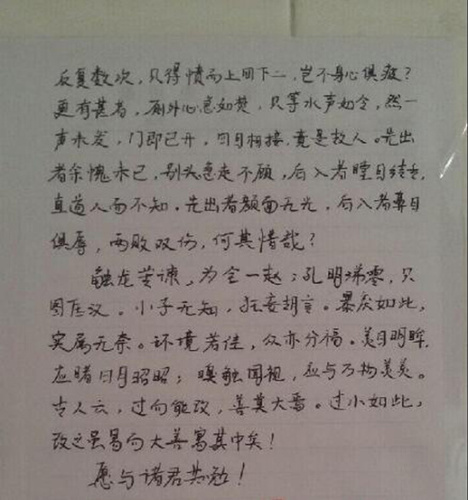 反复数次，只得愤而上回下二，岂不身心俱疲？
更有甚者，厕外心急如焚，只等水声如令，然一
声未发，门即已开，四目相接，竟是故人。先出
者余愧未已，别头急走不顾，后入者瞠目结舌，
直道人而不知。先出者颜面无光，后入者鼻目
俱辱，两败双伤，何其惜哉？
触龙苦谏，为全一赵；孔明涕零，只
图匡汉。小子无知，狂妄胡言。暴戾如此，
实属无奈。环境若佳，众亦分福。美目明眸，
应睹日月昭昭；嗅触闻视，应与万物美美。
古人云，过而能改，善莫大焉。过小如此，
改之虽易而大善寓其中矣！
愿与诸君共勉！